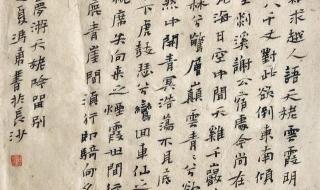 難求越人語天姥雲霞明
八千丈對此欲倒東南傾
剡溪謝公宿處今尚在
海日空中聞天雞千巖
林兮驚層巔雲青青兮欲
然中開青冥浩蕩不見底
下虎鼓瑟兮鸞回車仙之
枕席失向來之煙霞世間行
鹿青崖間須行即騎向名
夢游天姥吟留別
之夏書於長沙